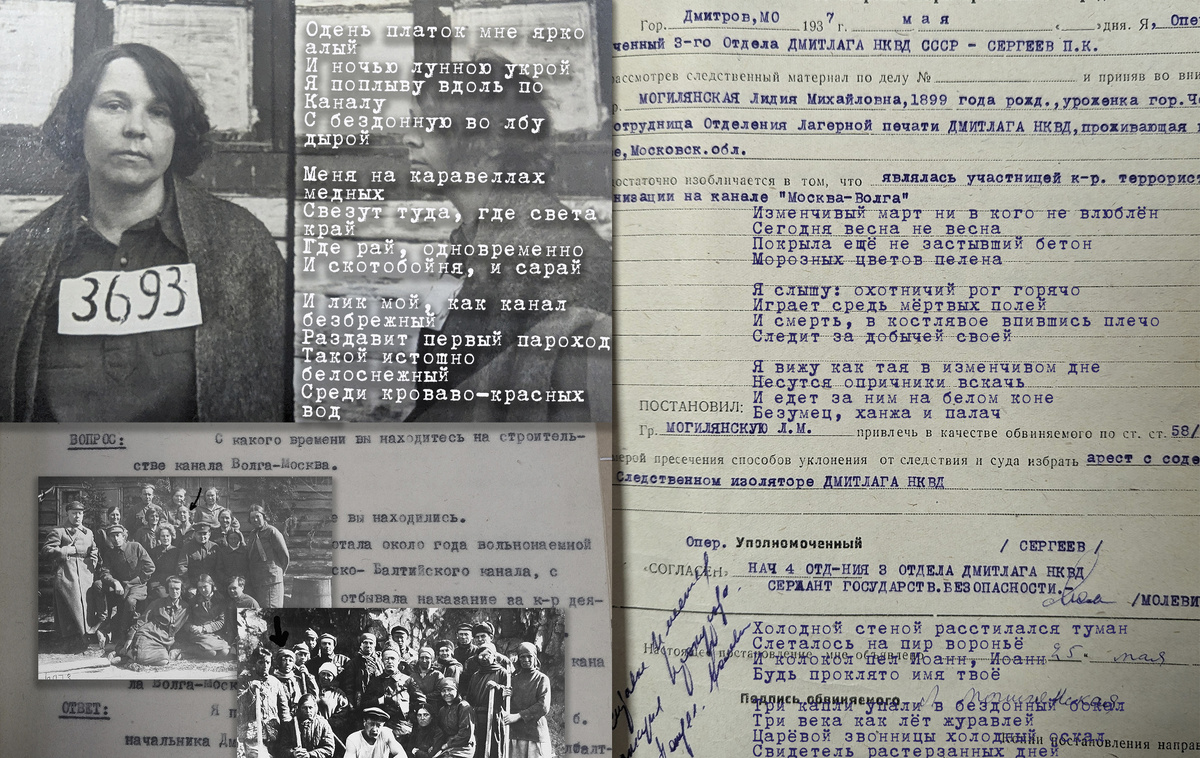 Одень платок мне ярко
алый
И ночью лунною укрой
Я поплыву вдоль по
Каналу
С бездонную во лбу
дырой
Меня на каравеллах
медных
Свезут туда, где света
край
Где рай, одновременно
И скотобойня, и сарай
И лик мой, как канал
безбрежный
Раздавит первый пароход
Такой истошно
белоснежный
Среди кроваво-красных
вод
3693
ВОПРОС: С какого времени вы находитесь на строитель-
стве канала Волга-Москва.
вы находились.
отала около года вольнонаемной
ско- Балтийского канала, с
отбывала наказание за к-р дея-
кана
ла Волга-Моск
ОТВЕТ: Я п
б.
начальника Дм
Гор. Дмитров, МО 1937 г. мая дня. Я, Опе
ченный 3-го Отдела ДМИТЛАГА НКВД СССР - СЕРГЕЕВ П.К.
рассмотрев следственный материал по делу № и приняв во вни
р. МОГИЛЯНСКАЯ Лидия Михайловна, 1899 года рожд., уроженка гор. Че
отрудница Отделения Лагерной печати ДМИТЛАГА НКВД, проживающая
е, Московск.обл.
достаточно изобличается в том, что являлась участницей к-р. террорист
низации на канале "Москва-Волга"
Изменчивый март ни в кого не влюблён
Сегодня весна не весна
Покрыла ещё не застывший бетон
Морозных цветов пелена
Я слышу: охотничий рог горячо
Играет средь мёртвых полей
И смерть, в костлявое впившись плечо
Следит за добычей своей
Я вижу как тая в изменчивом дне
Несутся опричники вскачь
И едет за ним на белом коне
Безумец, ханжа и палач
ПОСТАНОВИЛ:
Гр. МОГИЛЯНСКУЮ Л.М. привлечь в качестве обвиняемого по ст. ст. 58/
мерой пресечения способов уклонения от следствия и суда избрать арест с соде
Следственном изоляторе ДМИТЛАГА НКВД
Опер. Уполномоченный / СЕРГЕЕВ /
«СОГЛАСЕН» НАЧ 4 ОТД-НИЯ 3 ОТДЕЛА ДМИТЛАГА НКВД
СЕРЖАНТ ГОСУДАРСТВ.БЕЗОПАСНОСТИ.- /МОЛЕВИ
Холодной стеной расстилался туман
Слеталось на пир вороньё
И колокол пел Иоанн, Иоанн
Будь проклято имя твоё
25 мая
Подпись обвиняемого
Три капли упали в бездонный бокал
Три века как лёт журавлей
Царёвой звонницы холодный оскал
Свидетель растерзанных дней
постановления направ